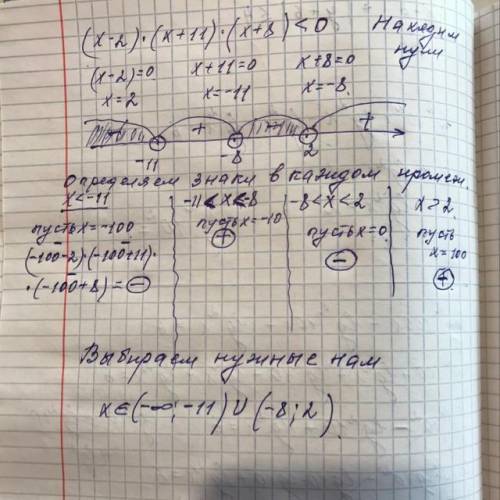 (x-2)·(x+11)·(x+8)<0 Находим нули
(x-2)=0 x+11=0 x+8=0
x=2 x=-11 x=-8
- + - +
-11 -8 2
Определяем знаки в каждом промеж.
x<-11 -11<x<-8 -8<x<2 x>2
пусть x=-100 пусть x=-10 пусть x=0 пусть x=100
(-100-2)·(-100+11)· + - +
·(-100+8)= -
Выбираем нужные нам
x∈(-∞;-11)∪(-8;2).